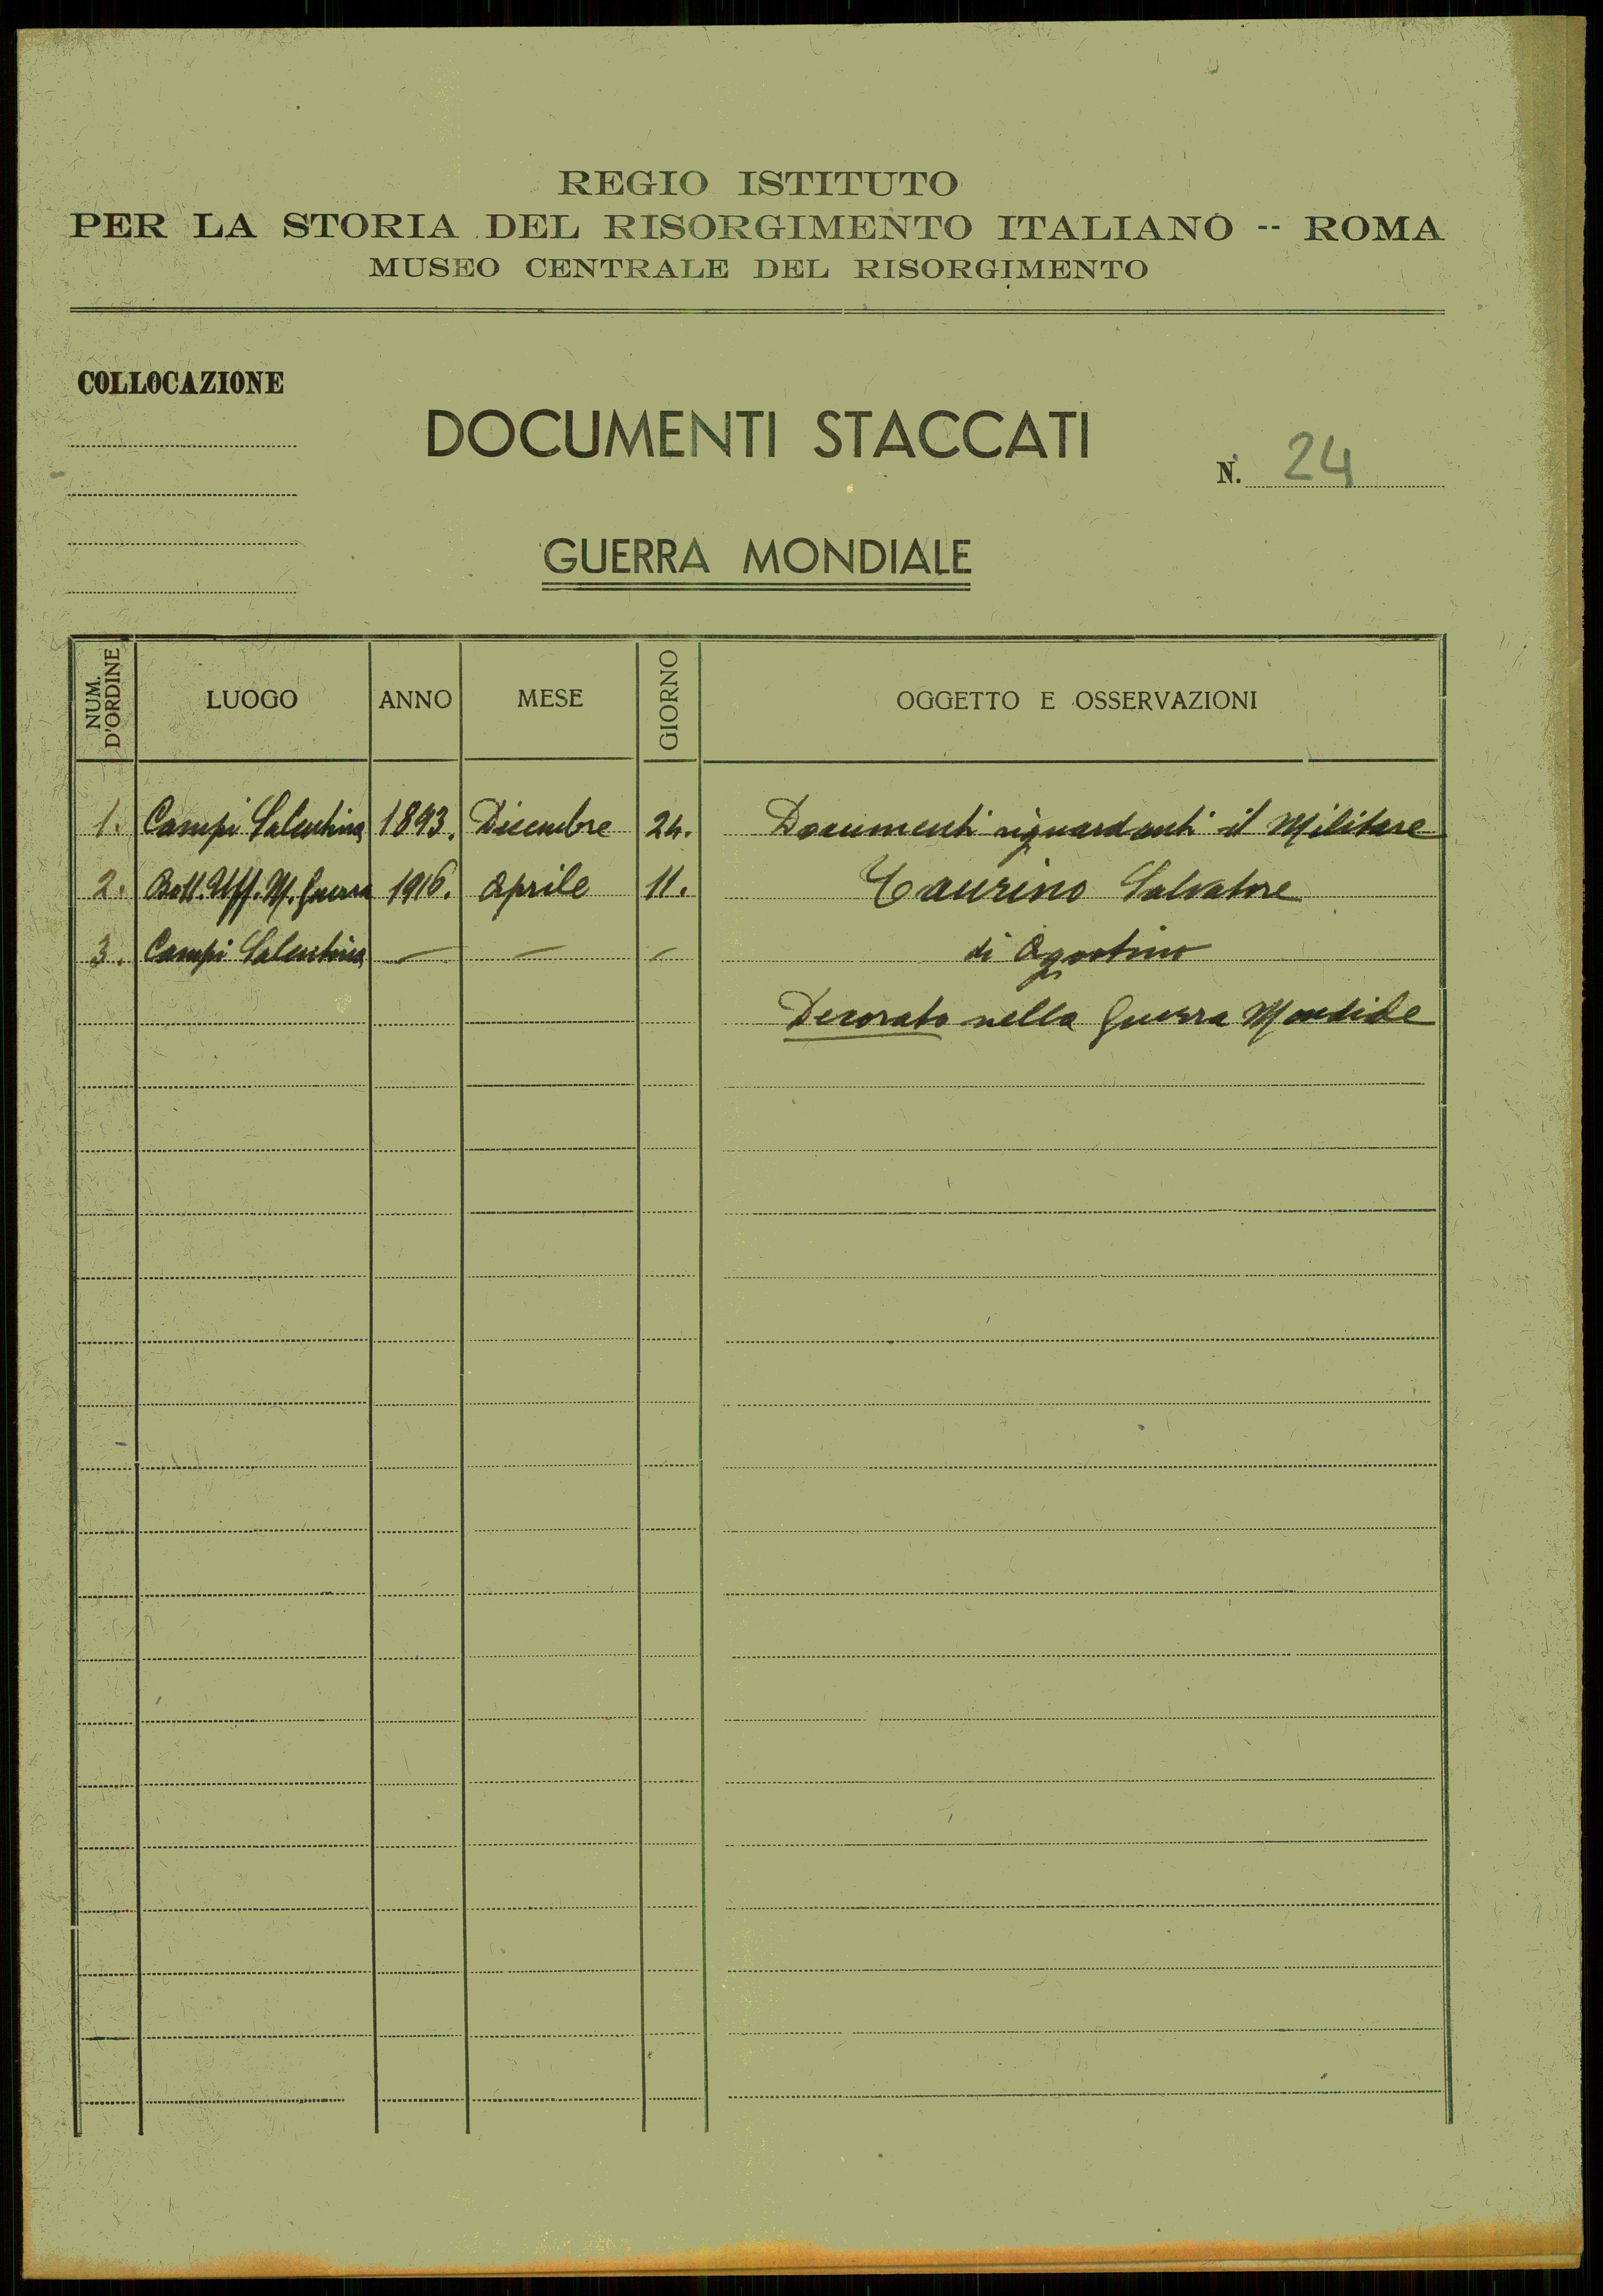 REGIO ISTITUTO
PER LA STORIA DEL RISORGIMENTO ITALIANO -- ROMA
MUSEO CENTRALE DEL RISORGIMENTO
COLLOCAZIONE
DOCUMENTI STACCATI
N. 24
GUERRA MONDIALE
NUM. D'ORDINE LUOGO ANNO MESE GIORNO OGGETTO E OSSERVAZIONI
1. Campi Salentina 1893. Dicembre 24. Documenti riguardanti il Militare
2. Boll. Uff. M. Guerra 1916. Aprile 11. Taurino Salvatore
3. Campi Salentina — — — di Agostino
Decorato nella Guerra Mondiale